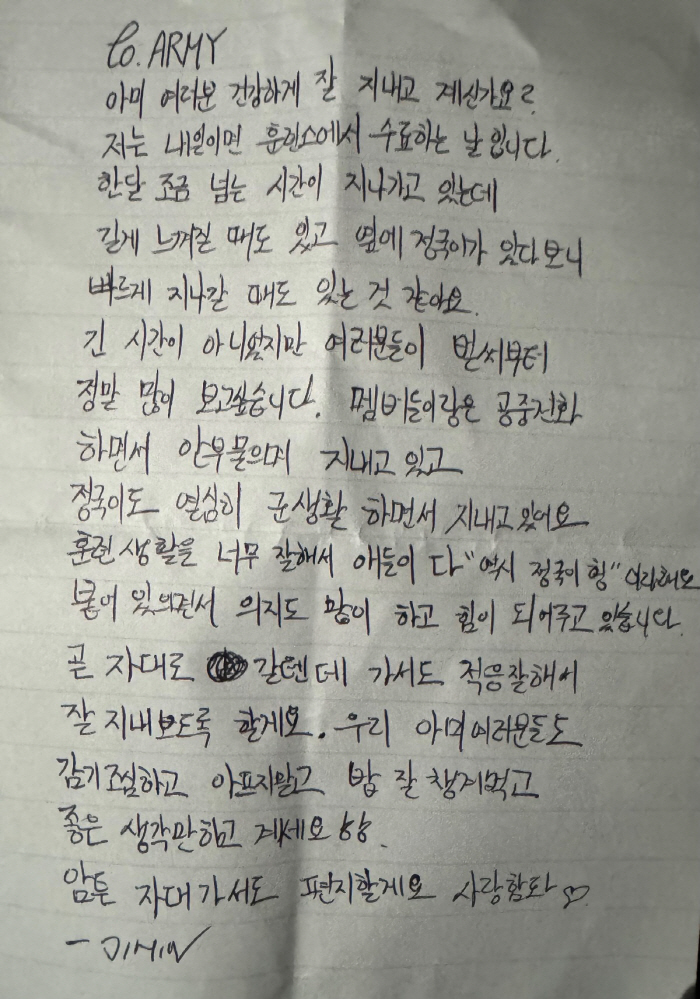 to. ARMY
아미 여러분 건강하게 잘 지내고 계신가요?
저는 내일이면 훈련소에서 수료하는 날 입니다.
한달 조금 넘는 시간이 지나가고 있는데
길게 느껴질 때도 있고 옆에 정국이가 있다보니
빠르게 지나갈 때도 있는 것 같아요.
긴 시간이 아니었지만 여러분들이 벌써부터
정말 많이 보고싶습니다. 멤버들이랑은 공중전화
하면서 안부 물으며 지내고 있고
정국이도 열심히 군생활 하면서 지내고 있어요
훈련 생활을 너무 잘해서 애들이 다 "역시 정국이 형" 이라해요
붙어 있으면서 의지도 많이 하고 힘이 되어주고 있습니다.
곧 자대로 갈텐데 가서도 적응잘해서
잘 지내보도록 할게요. 우리 아미여러분들도
감기조심하고 아프지말고 밥 잘 챙겨먹고
좋은 생각만하고 계세요
암튼 자대가서도 편지할게요 사랑함돠 ♡
- JIMIN